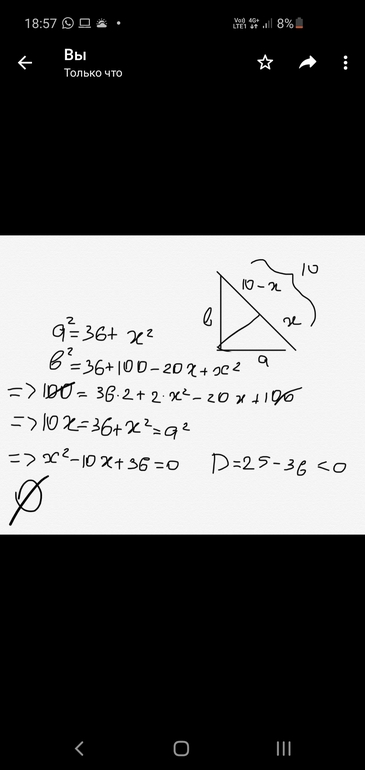 18:57 Vo) 4G+ LTE1 8%
Вы
Только что
10
10-x
b
x
a
a²=36+ x²
b²=36+100-20x+x²
=>100= 36·2+2·x²-20x+100
=>10x=36+x²=a²
=>x²-10x+36=0 D=25-36<0
Ø